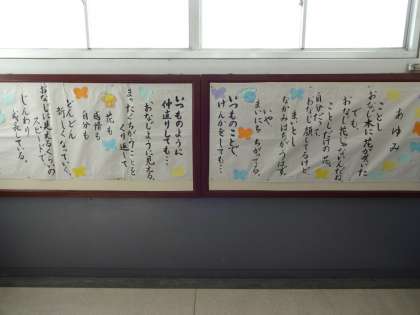 あゆみ
ことし
おなじ木に花が咲いた
でも、
おなじ花じゃないんだね
ことしだけの花。
自分だって
おなじ顔してるけど
まいにち
なかみはちがうはず。
いや
まいにち ちがってる。
いつものことで、
けんかをしても…
いつものように
仲直りしても…
おなじように見える、
まったくちがうことを
くり返して、
花も
感情も
自分も
どんどん
新しくなっていく。
おなじに見えるくらいの
スピードで、
じんわり
お花している。